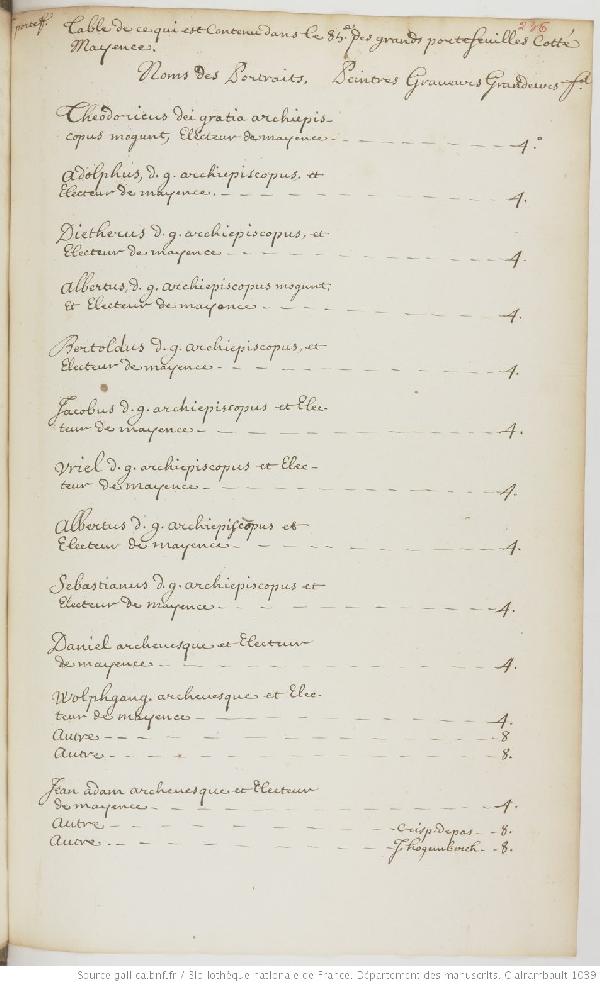 portef.
236
Table de ce qui est Contenu dans le 84.e des grands portefeuilles Cotté
Mayence.
Noms des Portraits. Peintres Graveurs Grandeurs
Theodoricus dei gratia archiepis-
copus mogunt; Electeur de mayence 4.o
Adolphus, d. g. archiepiscopus, et
Electeur de mayence. 4.
Dietherus d. g. archiepiscopus, et
Electeur de mayence 4.
Albertus, d. g. archiepiscopus mogunt;
et Electeur de mayence 4.
Bertoldus d. g. archiepiscopus, et
Electeur de mayence 4.
Jacobus d. g. archiepiscopus et Elec-
teur de mayence 4.
Vriel d. g. archiepiscopus et Elec-
teur de mayence 4.
Albertus d. g. archiepiscopus et
Electeur de mayence 4.
Sebastianus d. g. archiepiscopus et
Electeur de mayence 4.
Daniel archevesque et Electeur
de mayence 4.
Wolphgang. archevesque et Elec-
teur de mayence 4.
Autre 8
Autre 8.
Jean adam archevesque et Electeur
de mayence 4.
Autre Crisp. de pas 8.
Autre J. hogenberch 8.
Source gallica.bnf.fr / Bibliothèque nationale de France. Département des manuscrits. Clairambault 1039